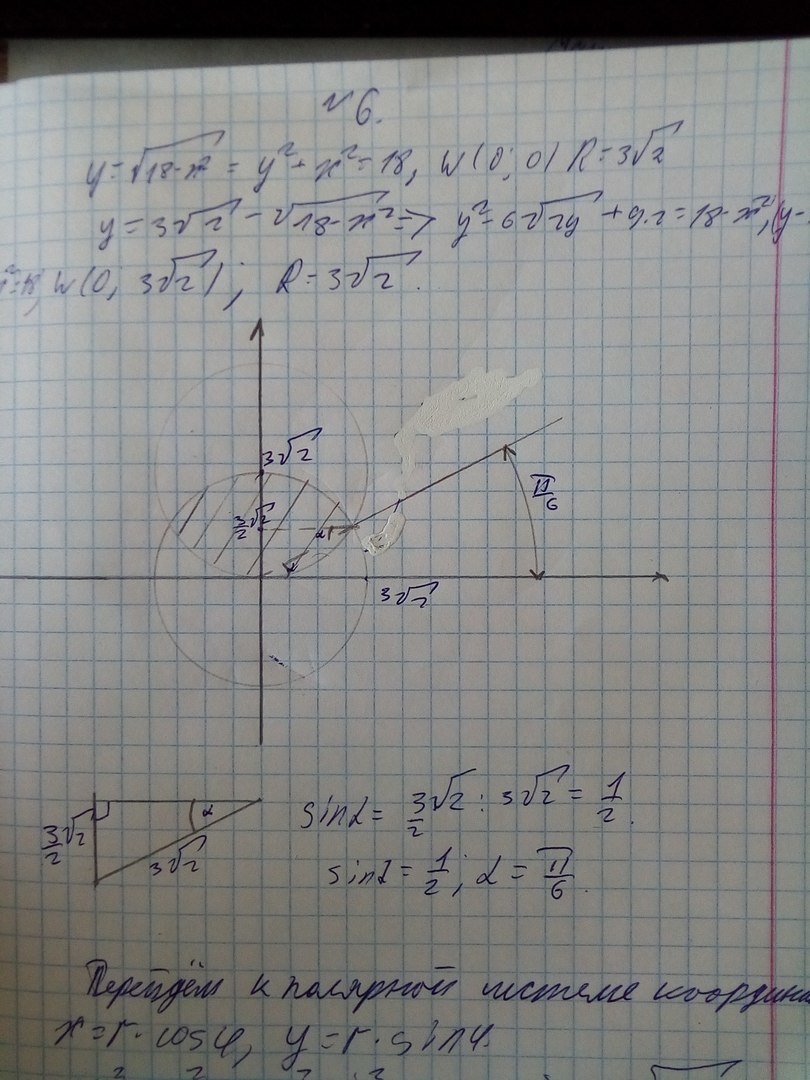 №6.
y=√18-x² = y²+x²=18, W(0;0) R=3√2
y=3√2-√18-x² => y²-6√2y+9·2=18-x², (y-
x²=18, W(0, 3√2); R=3√2.
3√2
π/6
3/2√2
α
3√2
3/2√2
α
3√2
sinα= 3/2√2 : 3√2 = 1/2.
sinα= 1/2; α= π/6.
Перейдём к полярной системе координа
x=r·cosφ, y=r·sinφ.